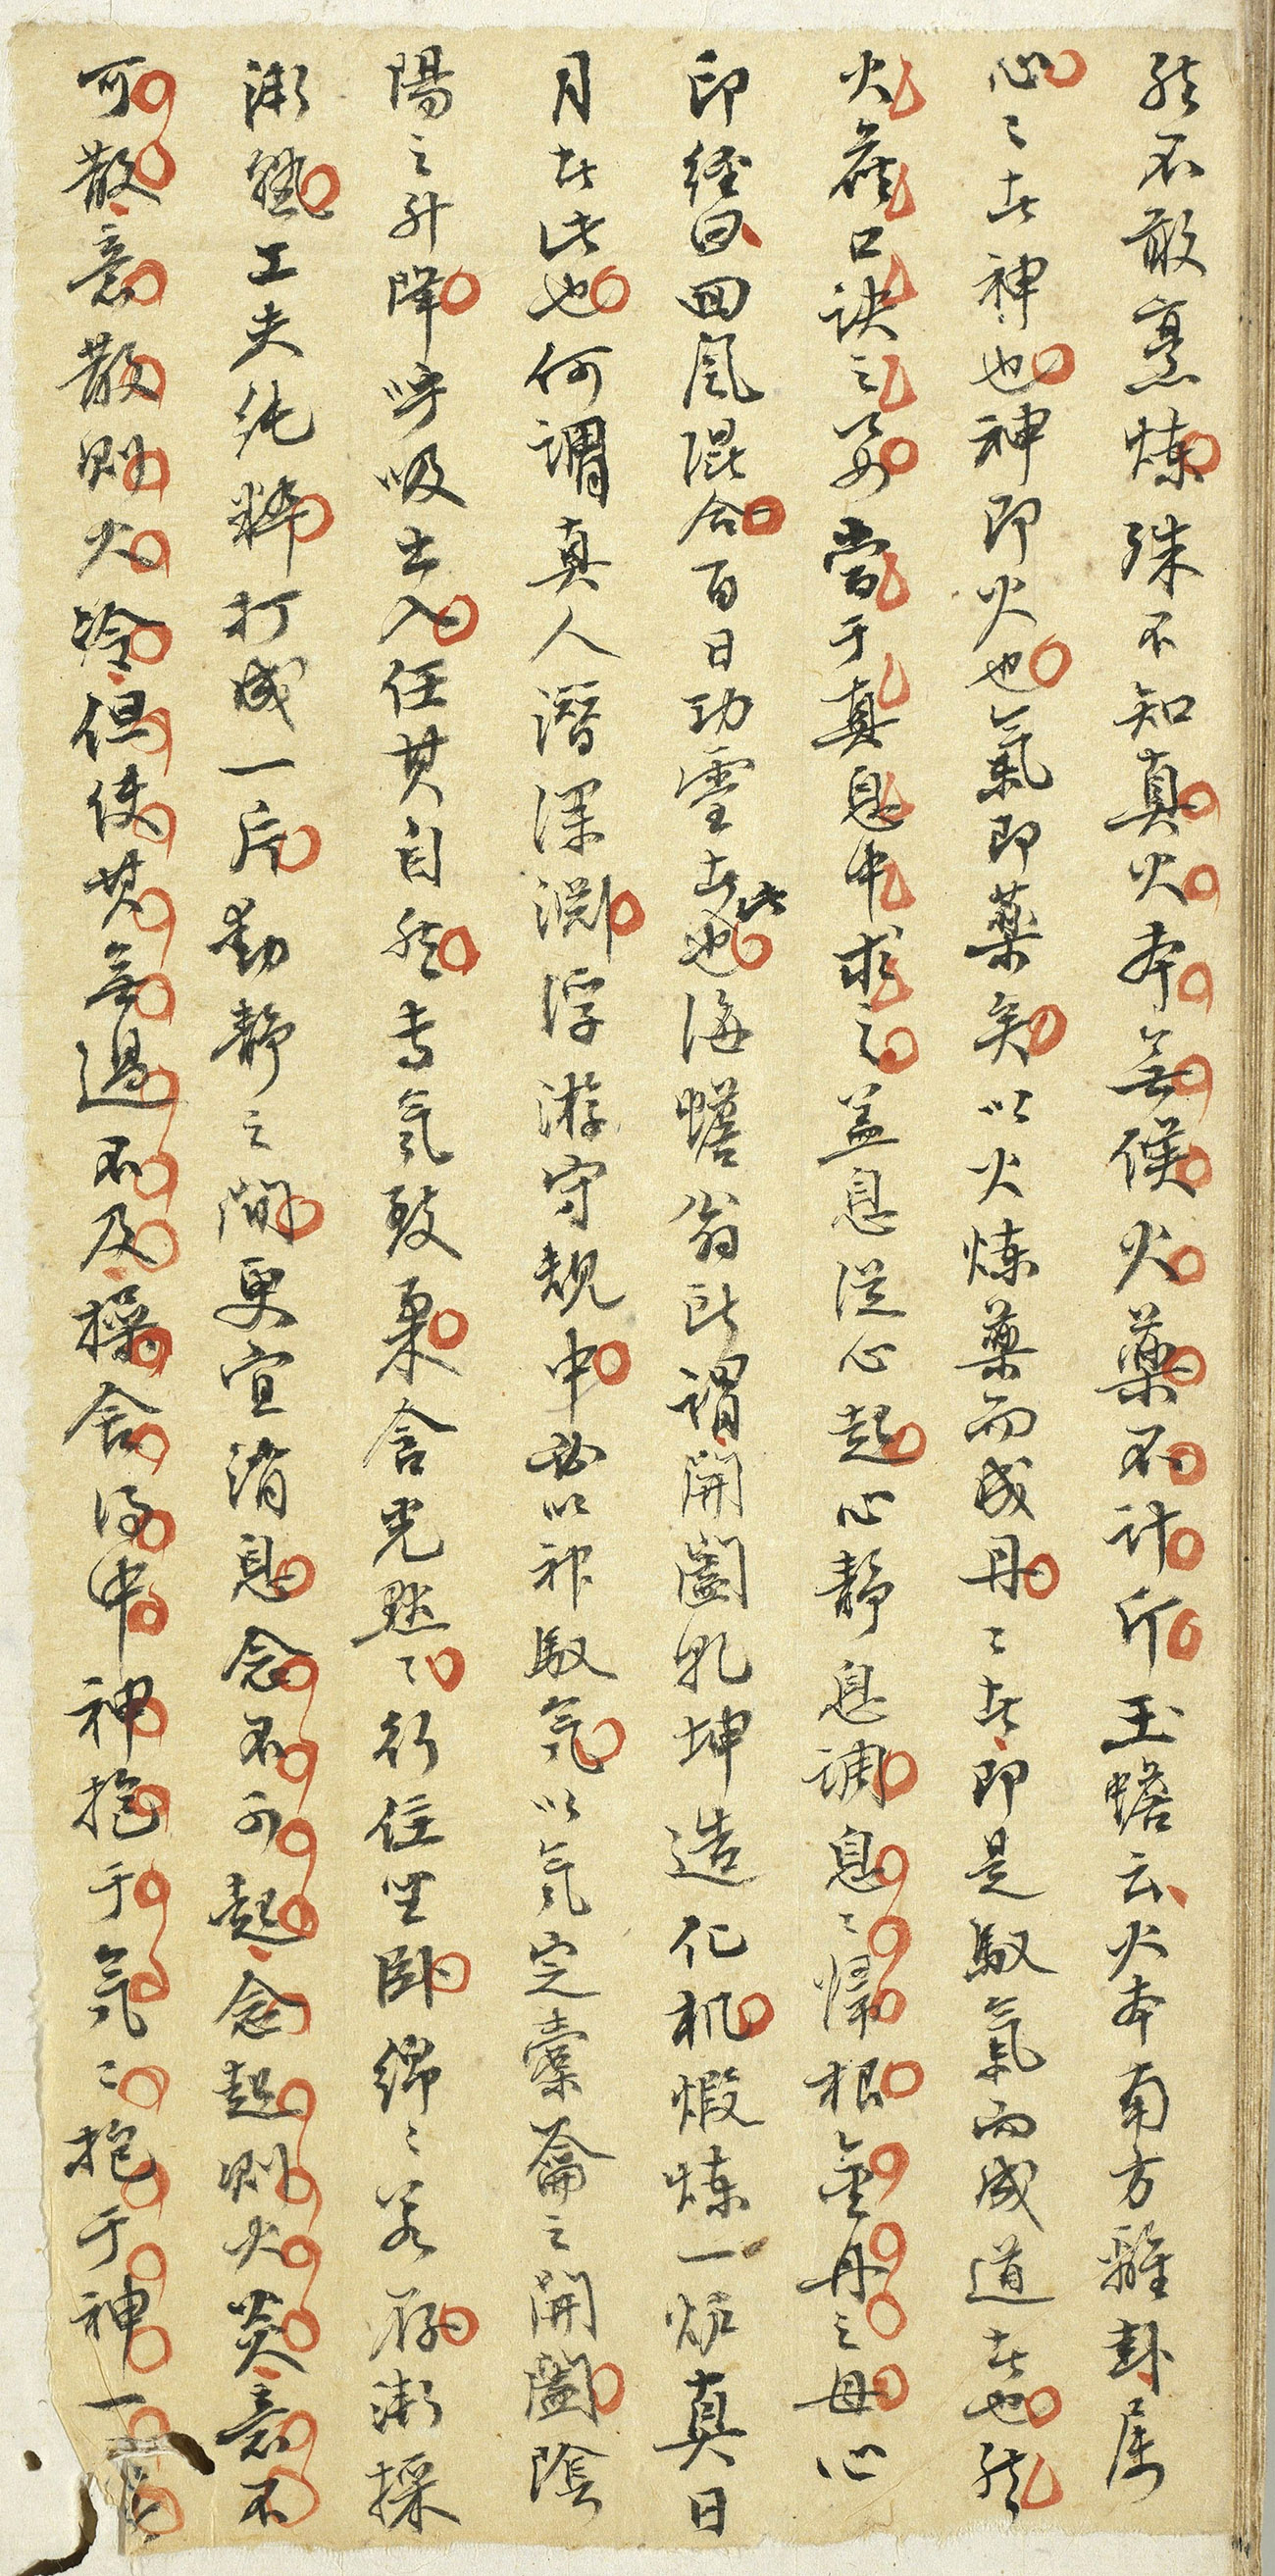 然不敢烹炼殊不知真火本無候火藥不計斤玉蟾云火本南方離卦属
心〻者神也神即火也氣即藥矣以火炼藥而成丹〻者即是馭氣而成道者也然
火候口诀之要當于真息中求之盖息從心起心靜息调息〻歸根金丹之母心
印经曰回風混合百日功靈者此也海蟾翁所谓開闔乾坤造化机煅炼一炉真日
月者此也何谓真人潛深淵浮游守規中必以神馭气以气定橐籥之開闔陰
陽之升降呼吸出入任其自然专气致柔含光默〻行住坐卧绵〻若存渐採
渐煉工夫纯粹打成一片動靜之间更宜消息念不可起念起则火炎意不
可散意散则火冷但使其無過不及操舍得中神抱于气〻抱于神一意